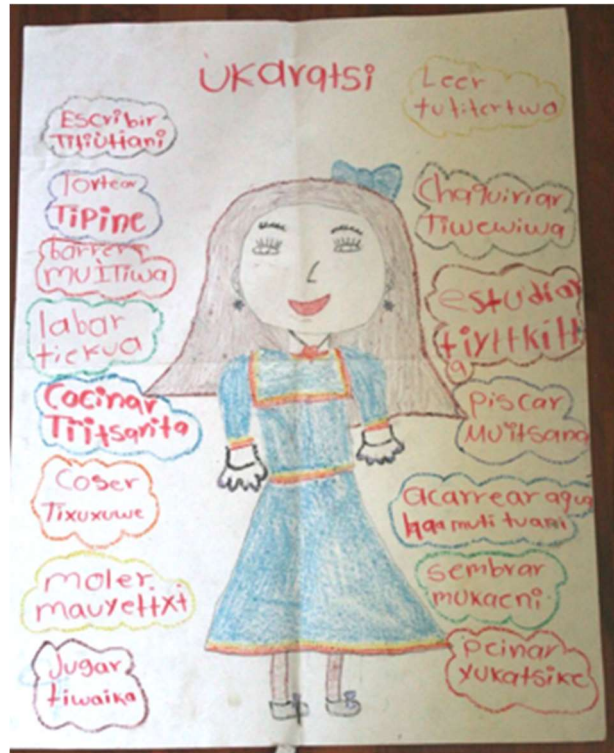 ÜKARATSI
Escribir
Titiutiani
Tortear
Tipine
barrer
MUITIWA
labar
tiekua
Cocinar
Tiitsarita
Coser
Tixuxuwe
moler
mauyettxt
Jugar
tiwaika
Leer
tutitertwa
Chaquiriar
Tiwewiwa
estudiar
tiyttkitt
a
Piscar
Muitsana
acarrear agua
haa muti tuani
sembrar
mukaeni
Peinar
xukatsike